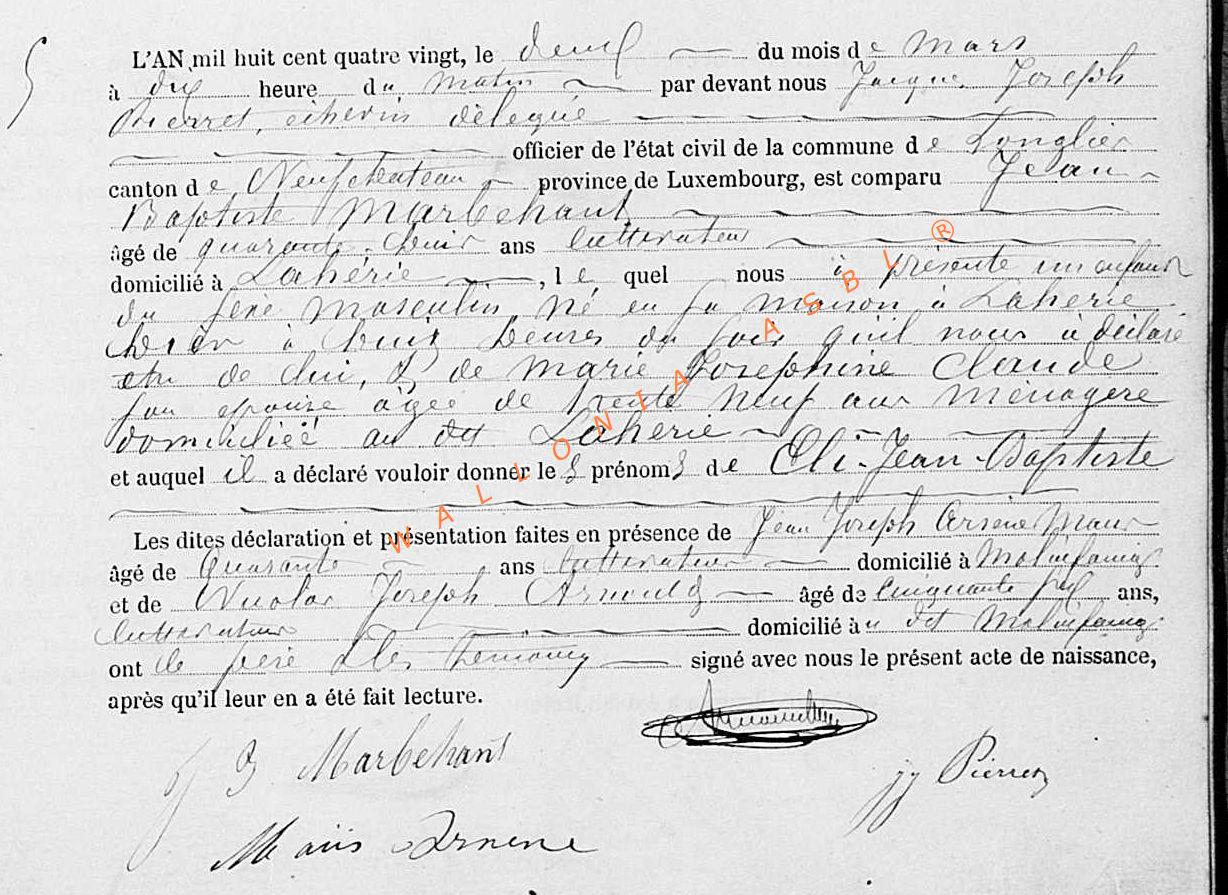 5
L'AN mil huit cent quatre vingt, le deux du mois de Mars
à dix heure du matin par devant nous Jacque Joseph
Pierret, échevin délégué
officier de l'état civil de la commune de Longlier
canton de Neufchateau province de Luxembourg, est comparu Jean
Baptiste Marbehant
âgé de quarante ans cultivateur
domicilié à Lahérie, le quel nous à présenté un enfant
du sexe masculin né en sa maison à Lahérie
hier à huit heures du soir qu'il nous à déclaré
être de lui, & de Marie Josephine Claude
son epouse agée de trente neuf ans ménagère
domiciliéé au dit Laherie
et auquel il a déclaré vouloir donner les prénoms de Eli-Jean-Baptiste
Les dites déclaration et présentation faites en présence de Jean Joseph Arsène Maus
âgé de Quarante ans cultivateur domicilié à Molinfaing
et de Nicolas Joseph Arnould âgé de Cinquante six ans,
cultivateur domicilié au dit Molinfaing
ont le père & les témoins signé avec nous le présent acte de naissance,
après qu'il leur en a été fait lecture.
WALLONIA ASBL ®
J B Marbehant
Arnould
jj Pierret
Maus Arsene